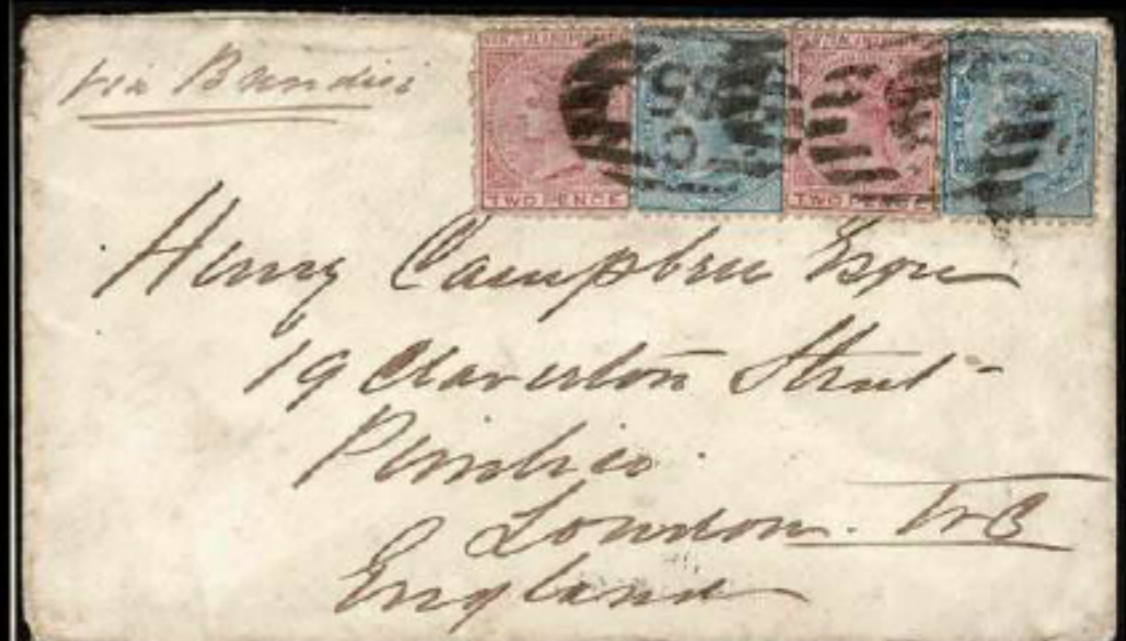 via Brindisi
TWO PENCE
TWO PENCE
Henry Campbell Esqre
19 Claverton Street
Pimlico
London.
England